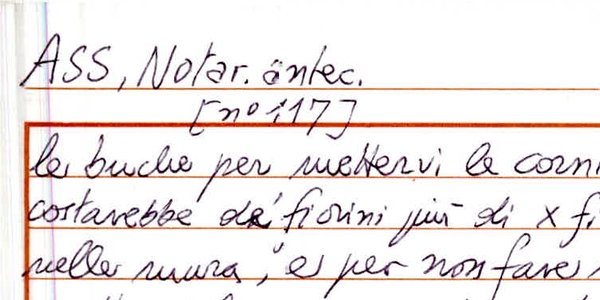 ASS, Notar. antec.
[nº 117]
le buche per mettervi le corni
costarebbe de' fiorini più di x fi
nelle mura, e per non fare